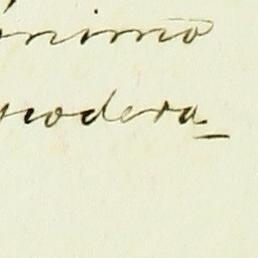 ónimo
podera_